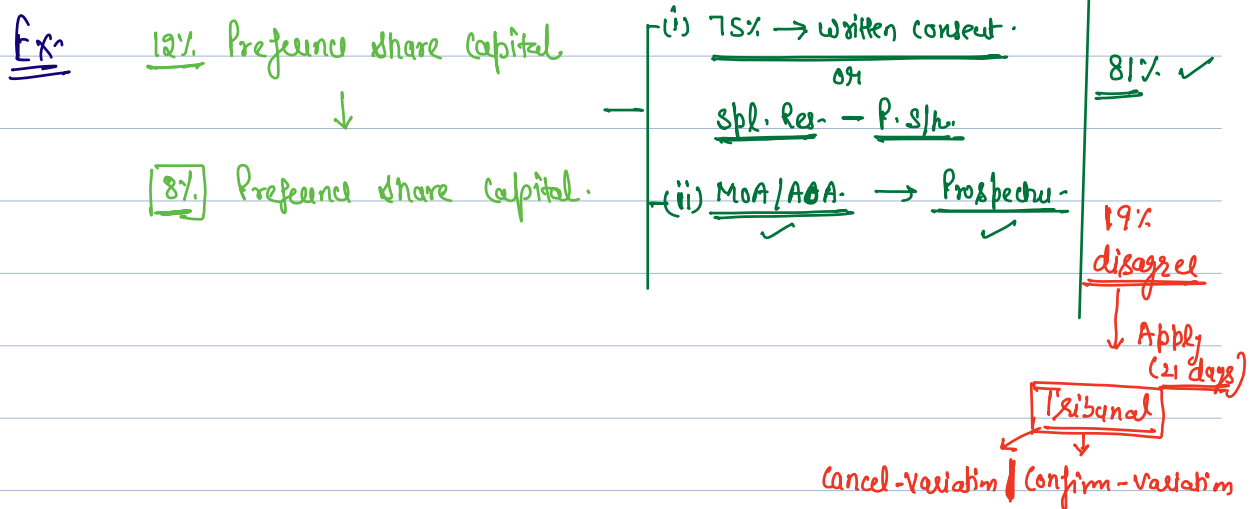 Ex:
12% Preference share capital
↓
8% Preference share capital.
(i) 75% → written consent.
or
Spl. Res. - P. S/h.
(ii) MOA/AOA. → Prospectu-
81% ✓
19%
disagree
↓ Apply
(21 days)
Tribunal
Cancel-variation | Confirm-variation